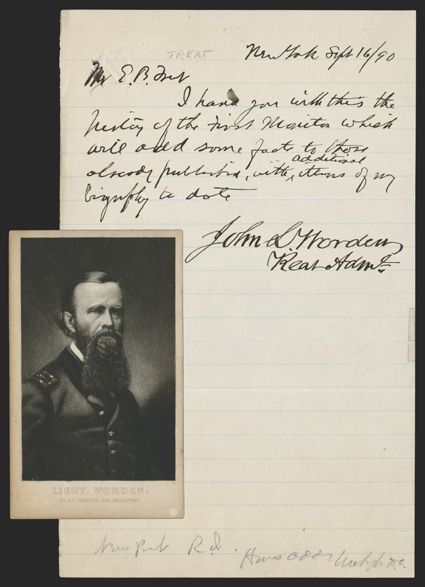 TREAT
New York Sept 16/90
Mr E. B. Treat
I hand you with this the
history of the First Monitor which
will add some facts to those
additional
already published, with items of my
biography to date
John L. Worden
Rear Adml
LIEUT. WORDEN.
Newport R.I.